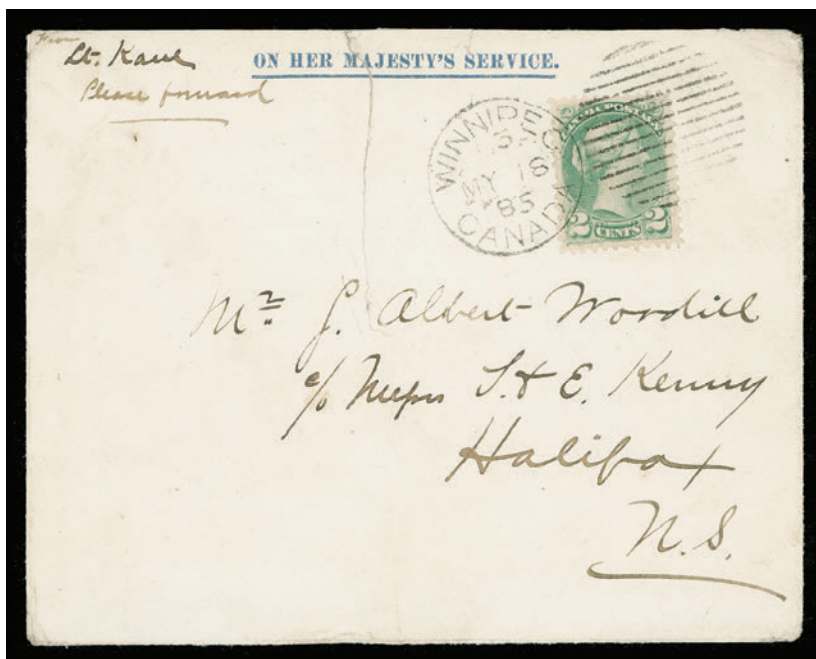 From
Lt. Kaue
Please forward
ON HER MAJESTY'S SERVICE.
WINNIPEG
MY 18
85
CANADA
POSTAGE
2 CENTS 2
Mr. J. Albert Wordill
c/o Messrs T. & E. Kenny
Halifax
N.S.